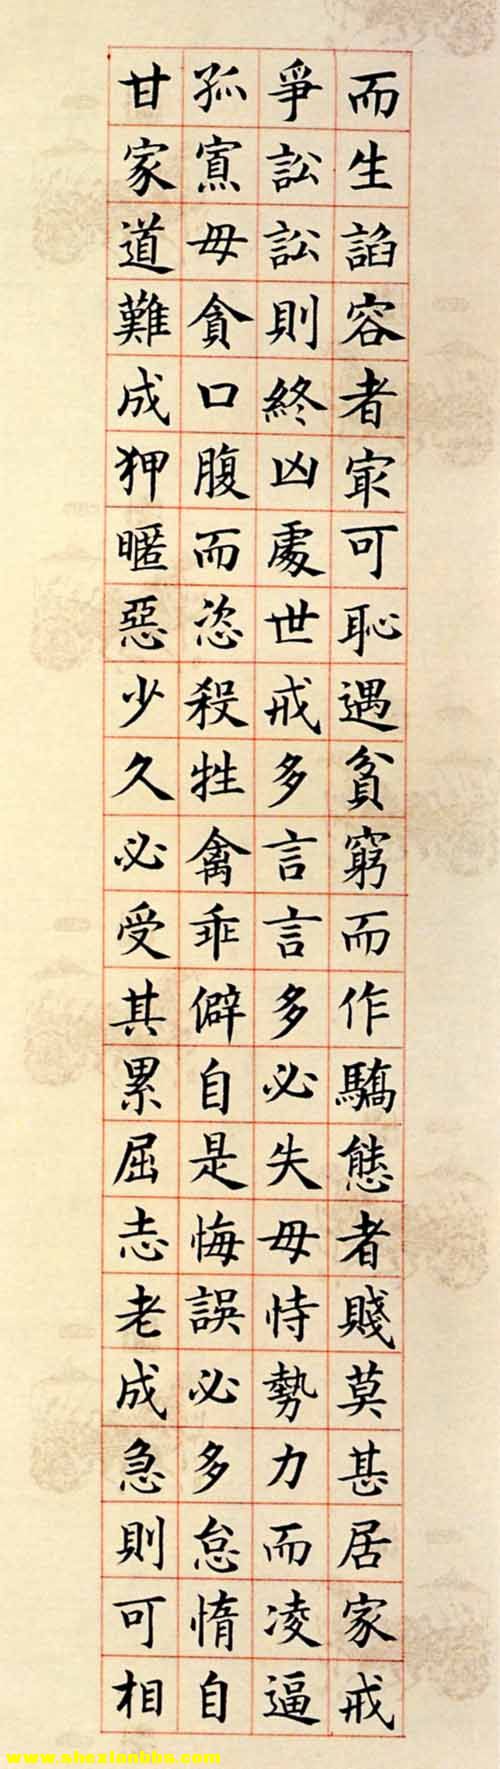 而生諂容者㝡可恥遇貧窮而作驕態者賤莫甚居家戒
爭訟訟則終凶處世戒多言言多必失毋恃勢力而凌逼
孤寡毋貪口腹而恣殺牲禽乖僻自是悔誤必多怠惰自
甘家道難成狎暱惡少久必受其累屈志老成急則可相
www.shexianbbs.com